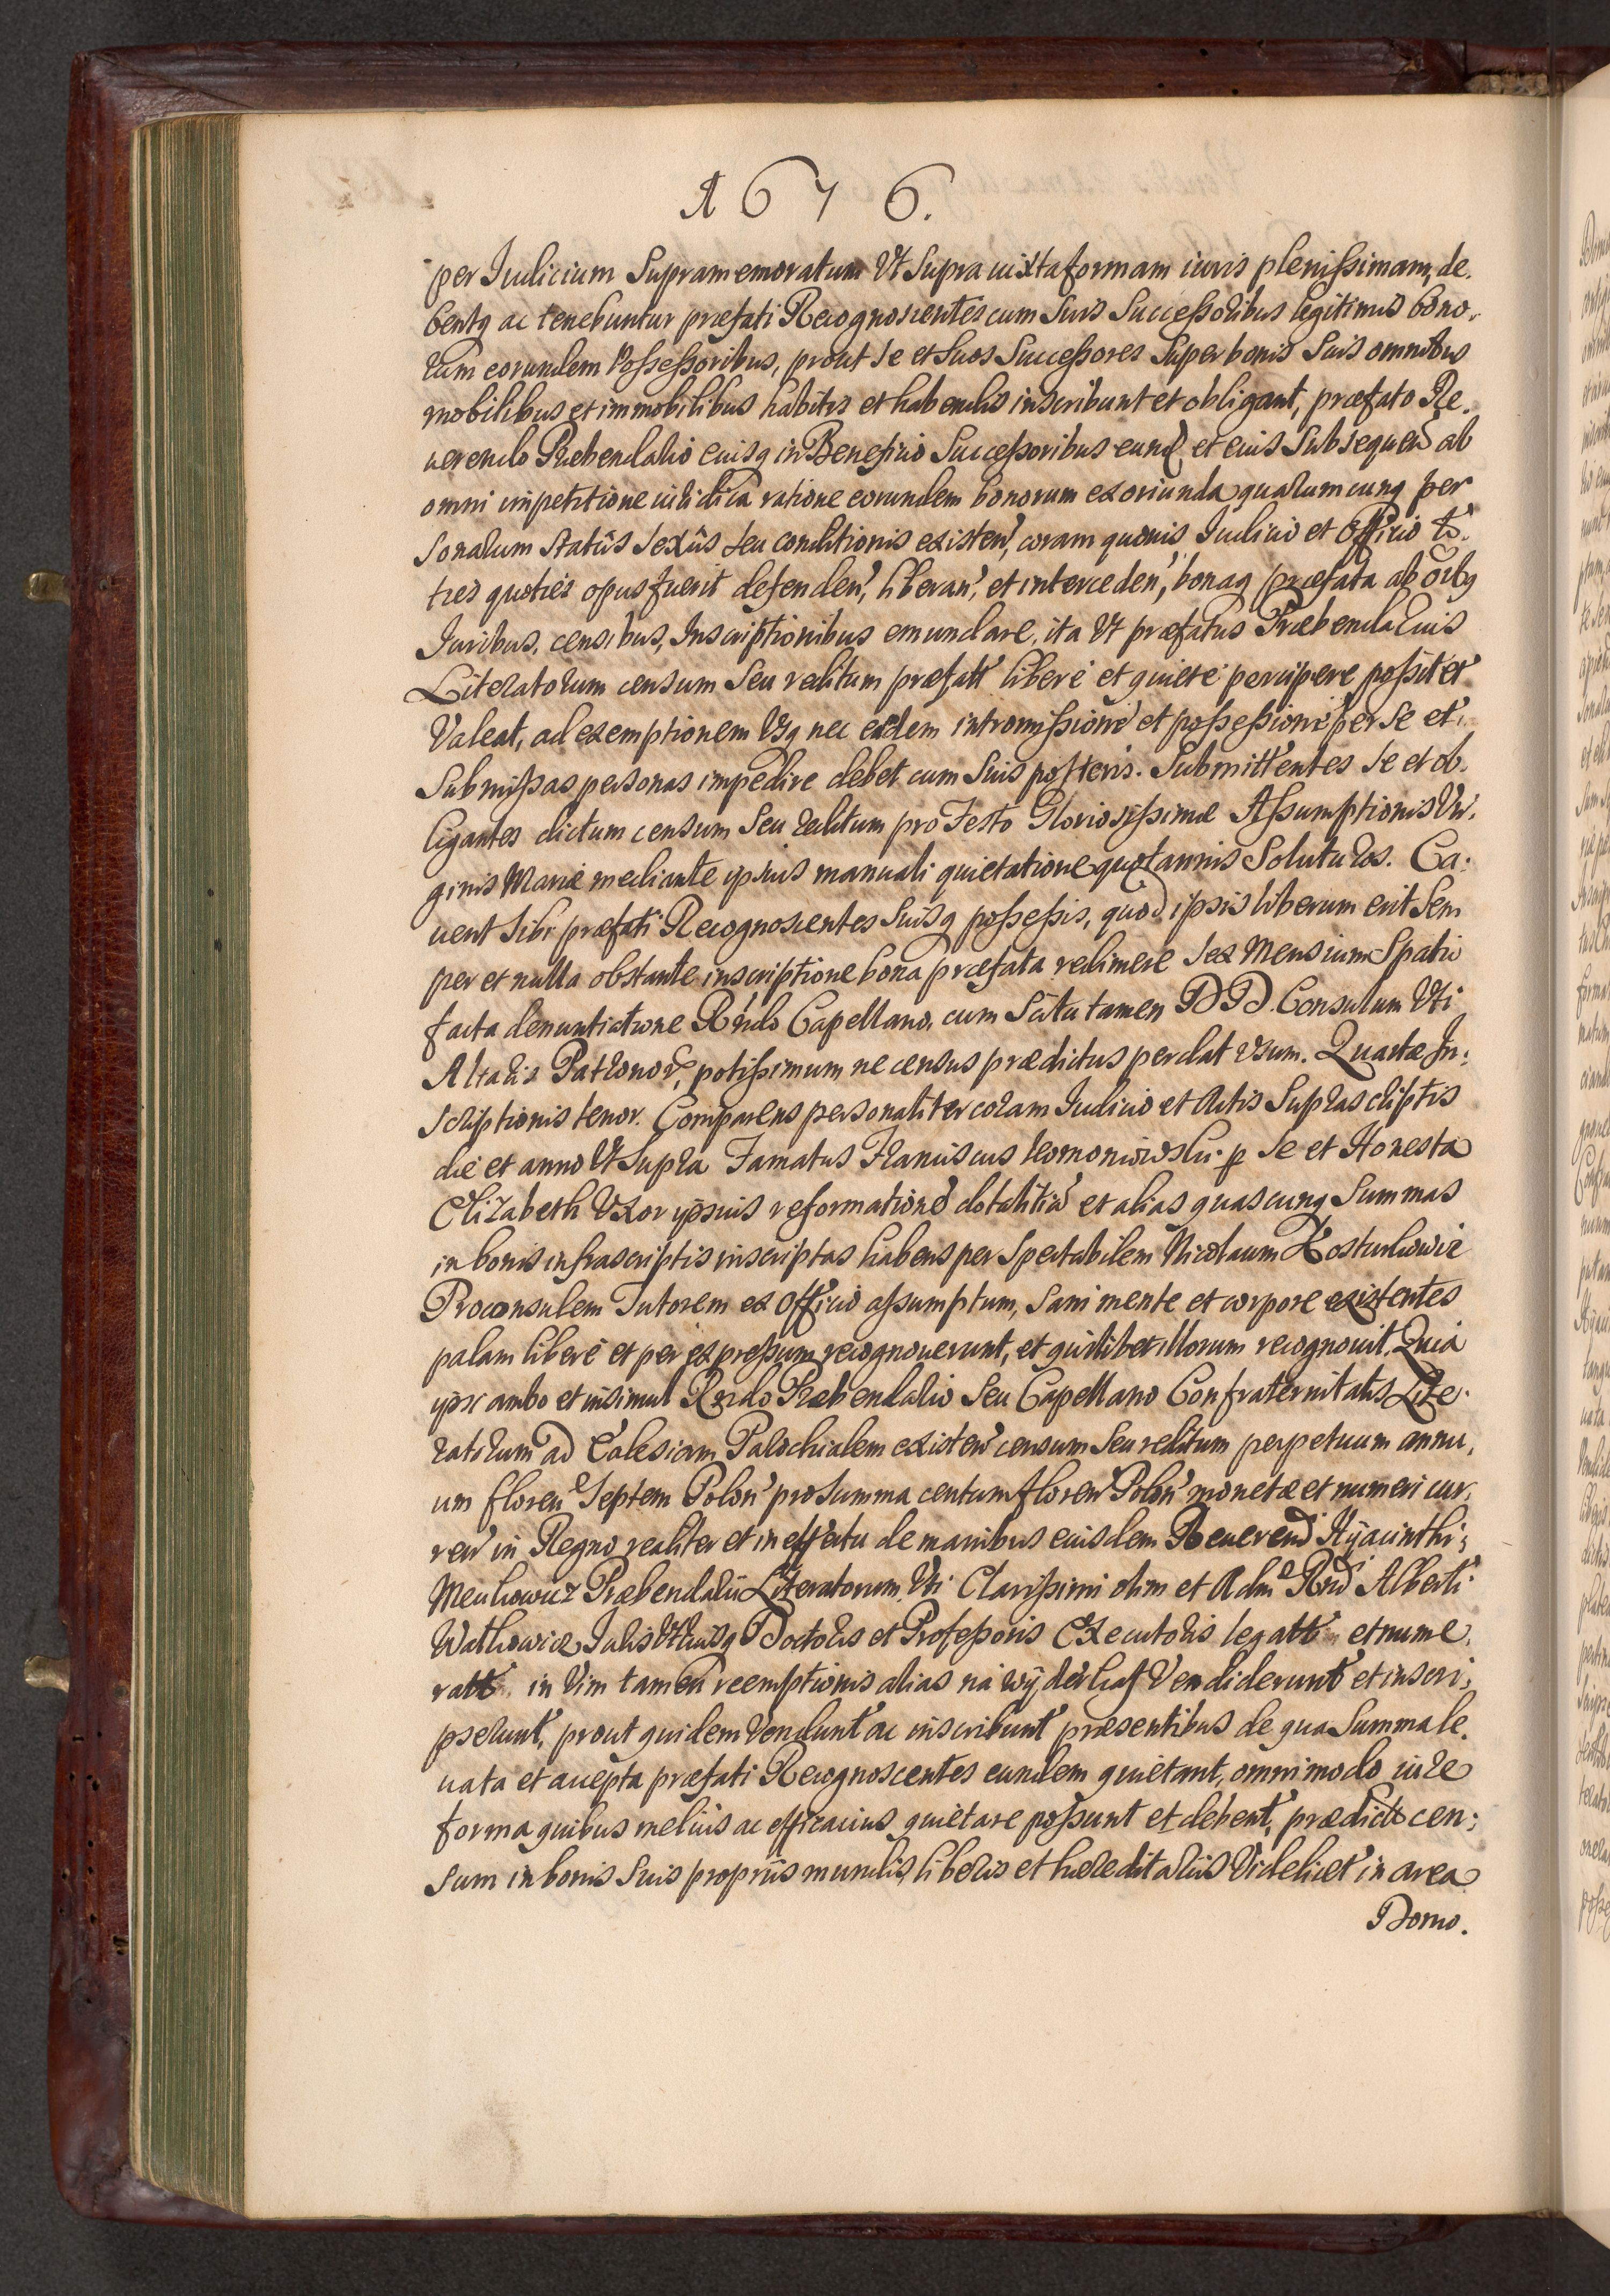 A 6 7 6.
per Iudicium Supramemoratum Vt Supra iuxta formam iuris plenissimam, de.
bentq ac tenebuntur præfati Recognoscentes cum Suis Successoribus legitimis bono,
rum eorundem Possessoribus, prout se et Suos Successores Super bonis Suis omnibus
mobilibus et immobilibus habitis et habendis inscribunt et obligant, præfato Re.
uerendo Præbendario eiusq in Beneficio Successoribus eund et eius Subsequen ab
omni impetitione iuridica ratione eorundem bonorum exoriunda quarumcunq per
sonarum Statûs Sexûs seu conditionis existen, coram quouis Iudicio et Officio to.
ties quoties opus fuerit defenden, liberan, et interceden, bonaq præfata ab oibq
Iuribus, censibus, Inscriptionibus emundare, ita Vt præfatus Præbendarius
Literatorum censum Seu reditum præfatt liberè et quietè percipere possit et
Valeat, ad exemptionem Vsq nec eidem intromissione et possessione per se et
Submissas personas impedire debet cum Suis posteris. Submittentes se et ob.
ligantes dictum censum Seu reditum pro Festo Gloriosissimæ Assumptionis Vir.
ginis Mariæ mediante ipsius manuali quietatione quotannis Soluturos. Ca.
uent sibi præfati Recognoscentes Suisq possessis, quod ipsis liberum erit Sem
per et nulla obstante inscriptione bona præfata redimere sex Mensium Spatio
facta denuntiatione Rndo Capellano, cum Scitu tamen DD. Consulum Vti
Altaris Patronor, potissimum ne census prædictus perdat vsum. Quartæ In.
scriptionis tenor. Comparens personaliter coram Iudicio et Actis Suprascriptis
die et anno Vt Supra Famatus Franciscus Komoniowski p se et Honesta
Elizabeth Vxor ipsius reformatione dotalitia et alias quascunq Summas
in bonis infrascriptis inscriptas habens per Spectabilem Nicolaum Kosturkowic
Proconsulem Tutorem ex Officio assumptum, Sani mente et corpore existentes
palam liberè et per expressum recognouerunt, et quilibet illorum recognouit. Quia
ipsi ambo et insimul Rndo Præbendario Seu Capellano Confraternitatis Lite.
ratorum ad Ecclesiam Parochialem existen censum Seu reditum perpetuum annu,
um floren Septem Polon pro Summa centum floren Polon monetæ et numeri cur,
ren in Regno realiter et in effectu de manibus eiusdem Reuerend Hyacinthi;
Meukowicz Præbendarii Literatorum Vti Clarissimi olim et Adm Rnd Alberti
Watkowicz Iuris Vtriusq Doctoris et Professoris Executoris legatt et nume,
ratt in Vim tamen reemptionis alias na wyderkaf Vendiderunt et inscri;
pserunt, prout quidem Vendunt ac inscribunt præsentibus de qua Summa le.
uata et accepta præfati Recognoscentes eundem quietant, omni modo iure
forma quibus melius ac efficacius quietare possunt et debent, prædict cen;
sum in bonis Suis propriis mundis, liberis et hæreditariis Videlicet in area
Domo.